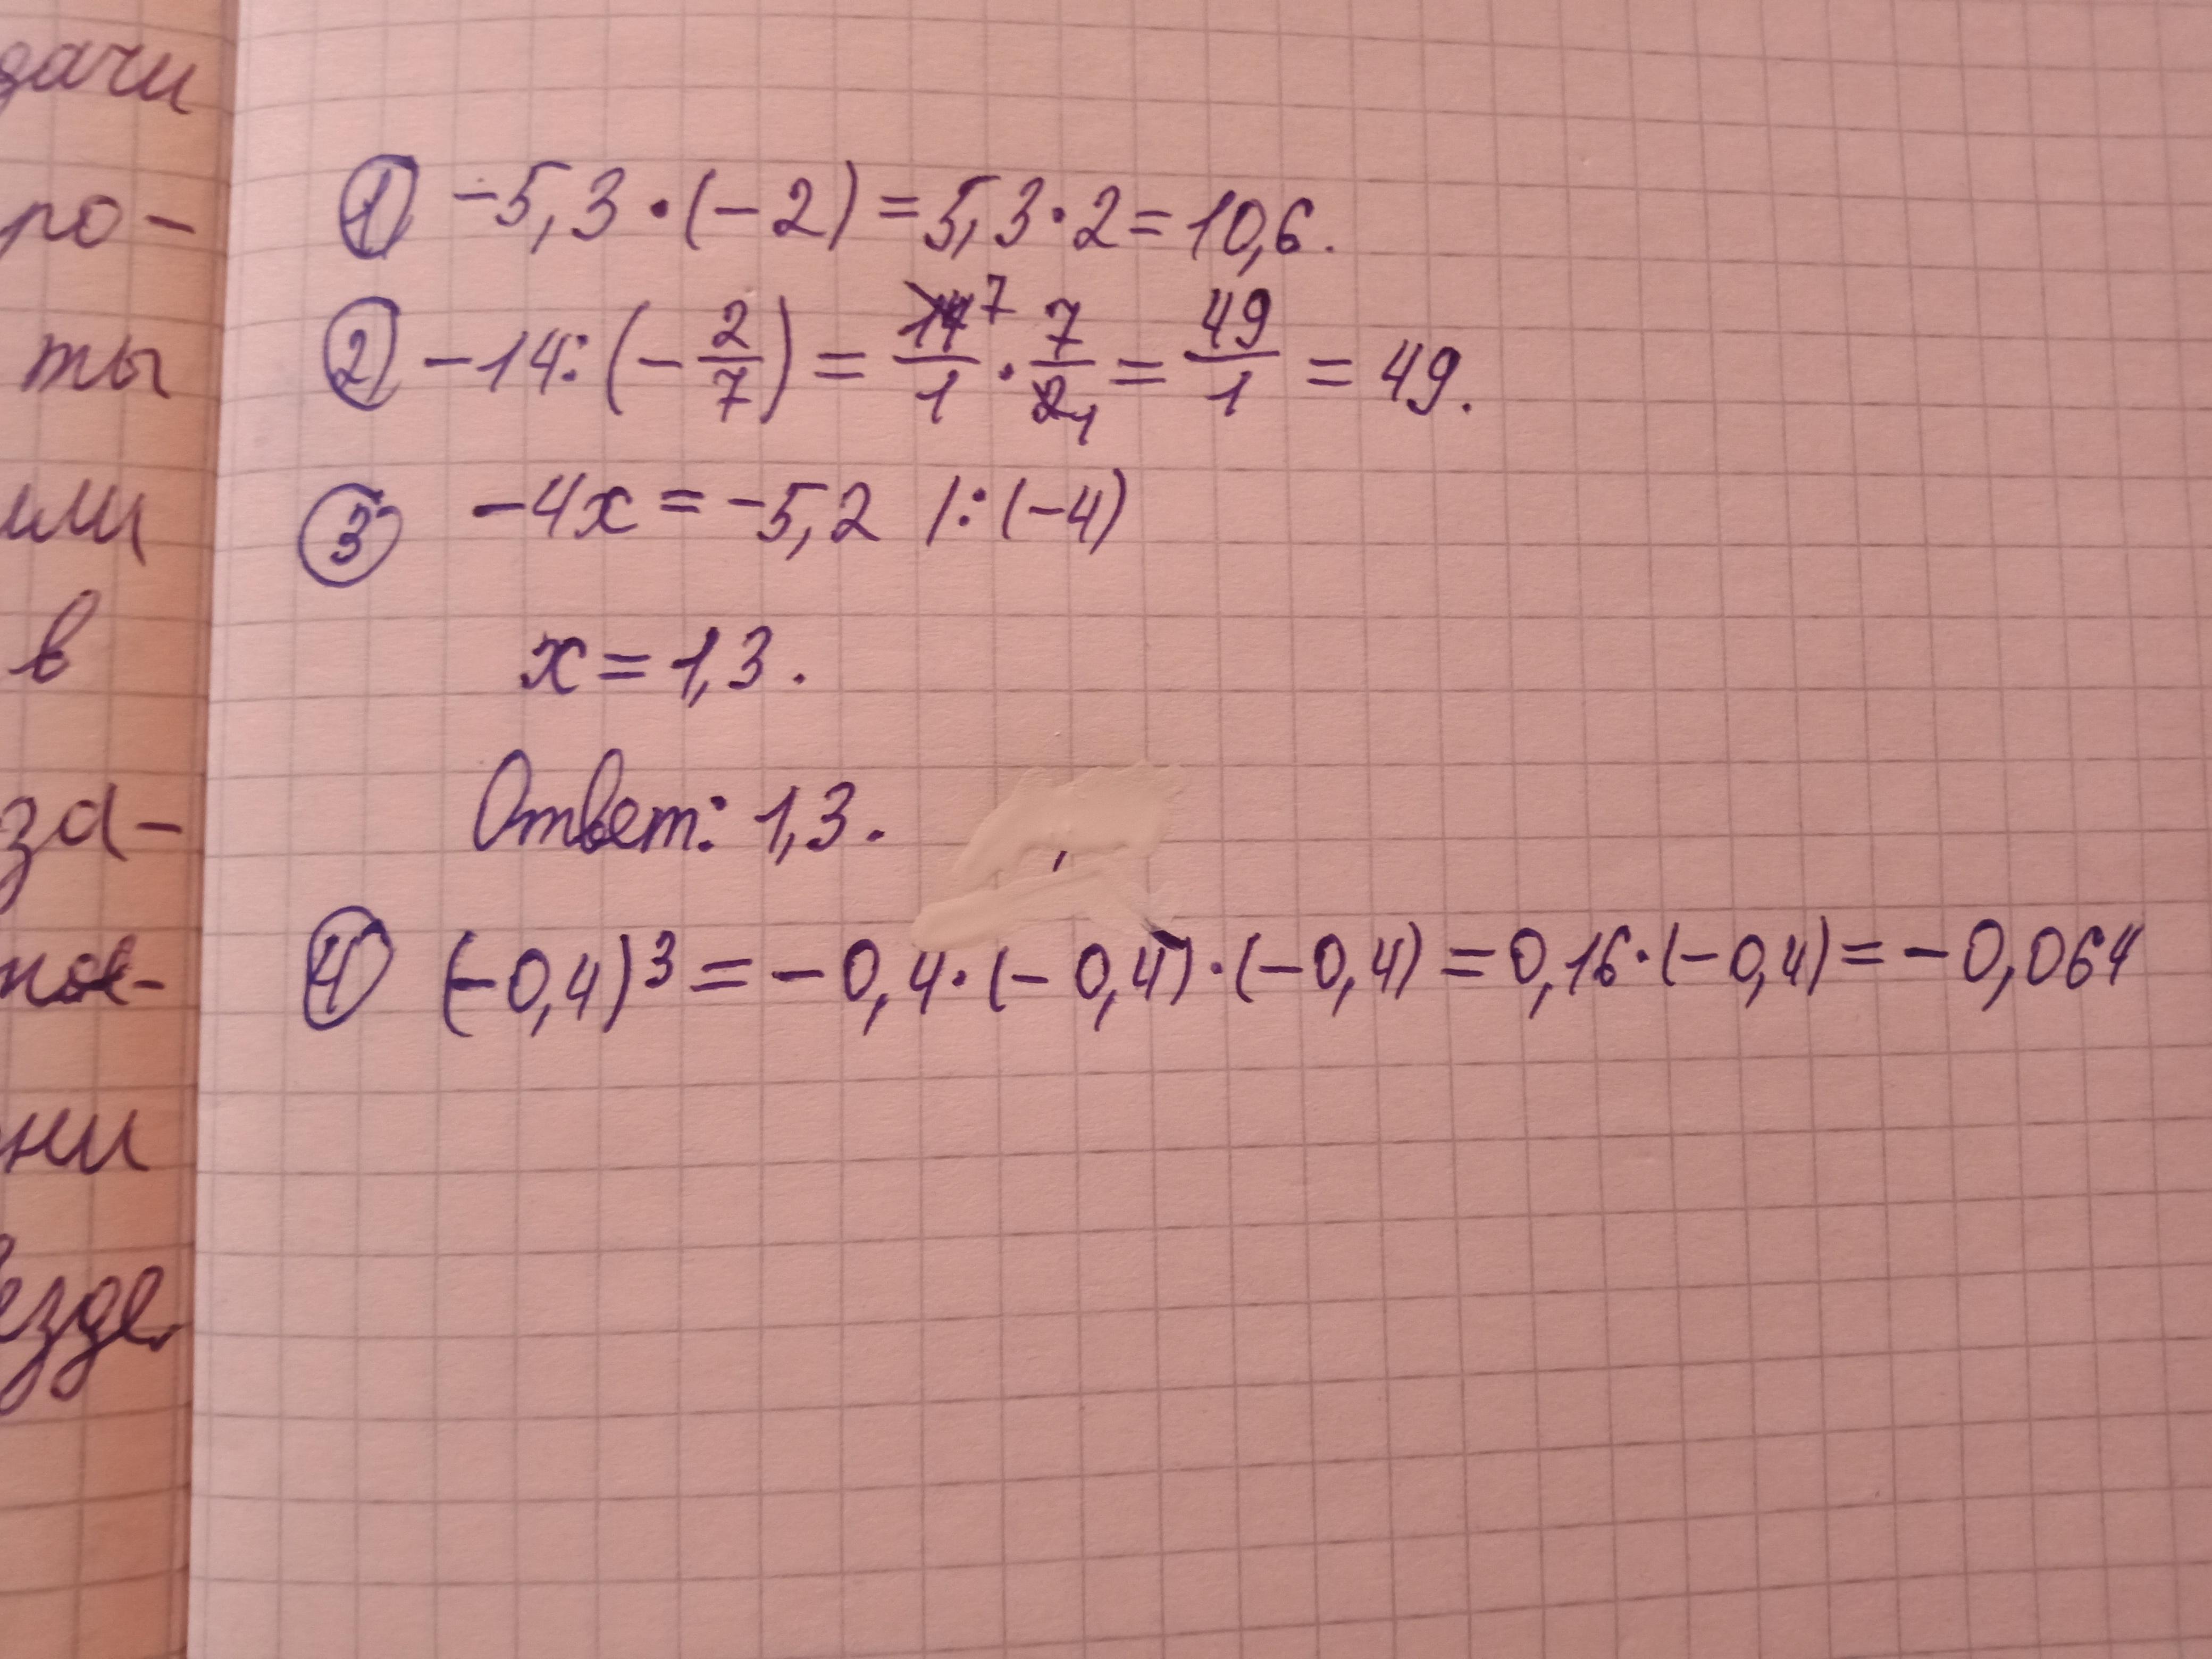 дачи
ро-
ты
или
в
за-
ни
езде
① -5,3·(-2)=5,3·2=10,6.
② -14:(-2/7)=14⁷/1·7/2₁=49/1=49.
③ -4x=-5,2 |:(-4)
x=1,3.
Ответ: 1,3.
④ (-0,4)³=-0,4·(-0,4)·(-0,4)=0,16·(-0,4)=-0,064